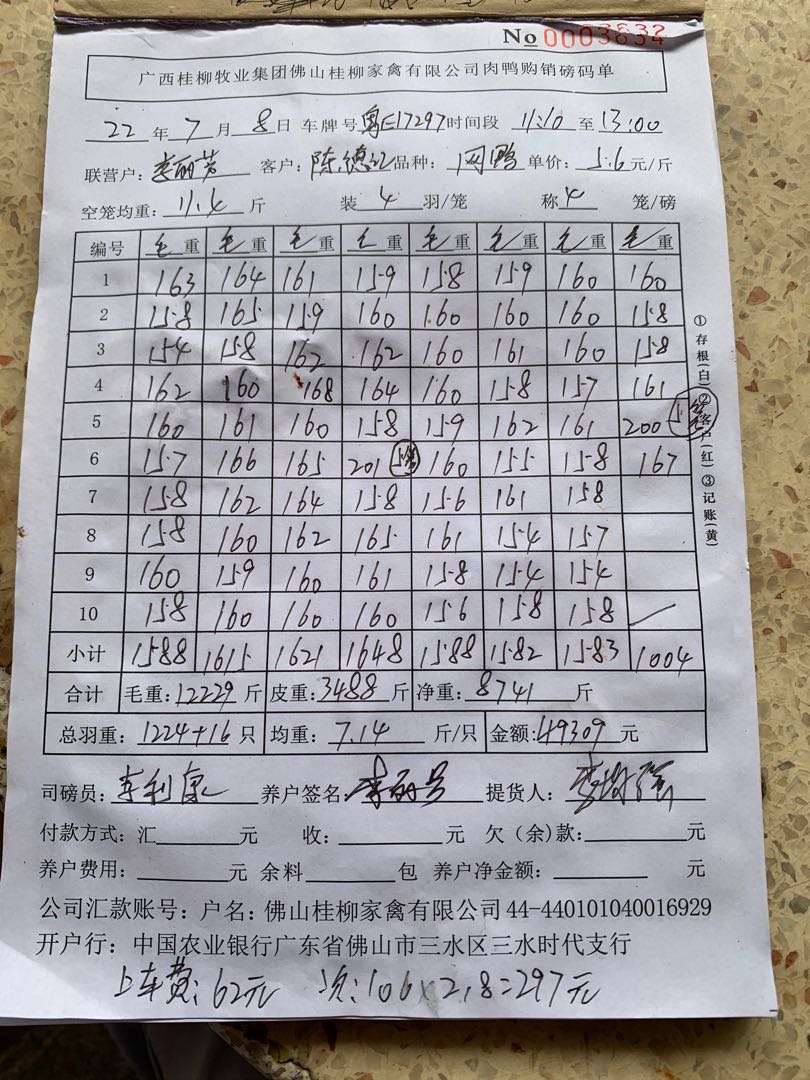 No 0003632
广西桂柳牧业集团佛山桂柳家禽有限公司肉鸭购销磅码单
22 年 7 月 8 日 车牌号 粤E17297 时间段 11:10 至 13:00
联营户: 李丽芳 客户: 陈德 品种: 网鸭 单价: 5.6 元/斤
空笼均重: 11.4 斤 装 4 羽/笼 称 4 笼/磅
编号 毛重 毛重 毛重 毛重 毛重 毛重 毛重 毛重
1 163 164 161 159 158 159 160 160
2 158 165 159 160 160 160 160 158
3 154 158 162 162 160 161 160 158
4 162 160 168 164 160 158 157 161
5 160 161 160 158 159 162 161 200 5笼
6 157 166 165 201 5笼 160 155 158 167
7 158 162 164 158 156 161 158
8 158 160 162 165 161 154 157
9 160 159 160 161 158 154 154
10 158 160 160 160 156 158 158
小计 1588 1615 1621 1648 1588 1582 1583 1004
合计 毛重: 12229 斤 皮重: 3488 斤 净重: 8741 斤
总羽重: 1224+16 只 均重: 7.14 斤/只 金额: 49309 元
司磅员: 李利康 养户签名: 李丽芳 提货人: 李
付款方式: 汇 元 收: 元 欠(余)款: 元
养户费用: 元 余料 包 养户净金额: 元
公司汇款账号: 户名: 佛山桂柳家禽有限公司 44-440101040016929
开户行: 中国农业银行广东省佛山市三水区三水时代支行
上车费: 62元 次: 106×2.8=297元
①存根(白)②客户(红)③记账(黄)